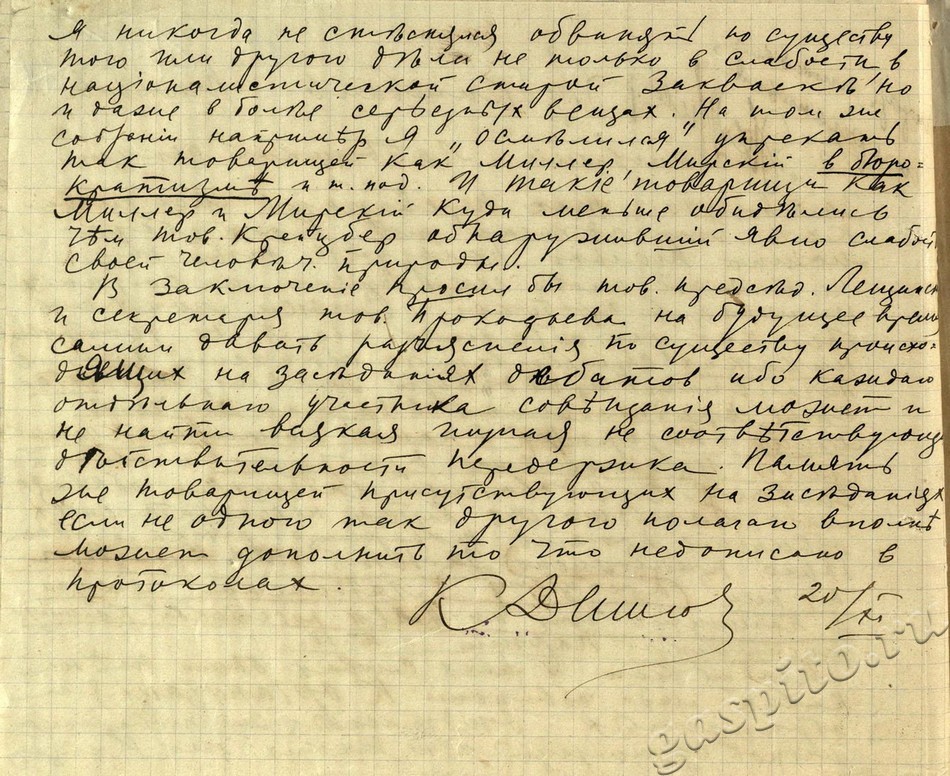 Я никогда не стѣснялся обвинять по существу
того или другого дѣла не только в слабости в
націоналистической старой закваскѣ, но
и даже в болѣе серьезных вещах. На том же
собраніи напримѣр я „осмѣлился" упрекать
так товарищей как Миллер, Мирскій в бюро=
кратизмѣ и т. под. И такіе товарищи как
Миллер и Мирскій куда меньше обидѣлись
чѣм тов. обнаружившій явно слабой
своей человѣч. природы.
В заключеніе просил бы тов. предсѣд.
и секретаря тов. Прокофьева на будущее время
самим давать разъясненія по существу происхо-
дящих на засѣданіях дебатов ибо каждаго
отдѣльнаго участника совѣщанія может и
не найти всякая не соотвѣтствующ
дѣйствительности передержка. Память
же товарищей присутствующих на засѣданіях
если не одного так другого полагаю вполнѣ
может дополнить то что недописано в
протоколах.
К 20/XI
gaspito.ru